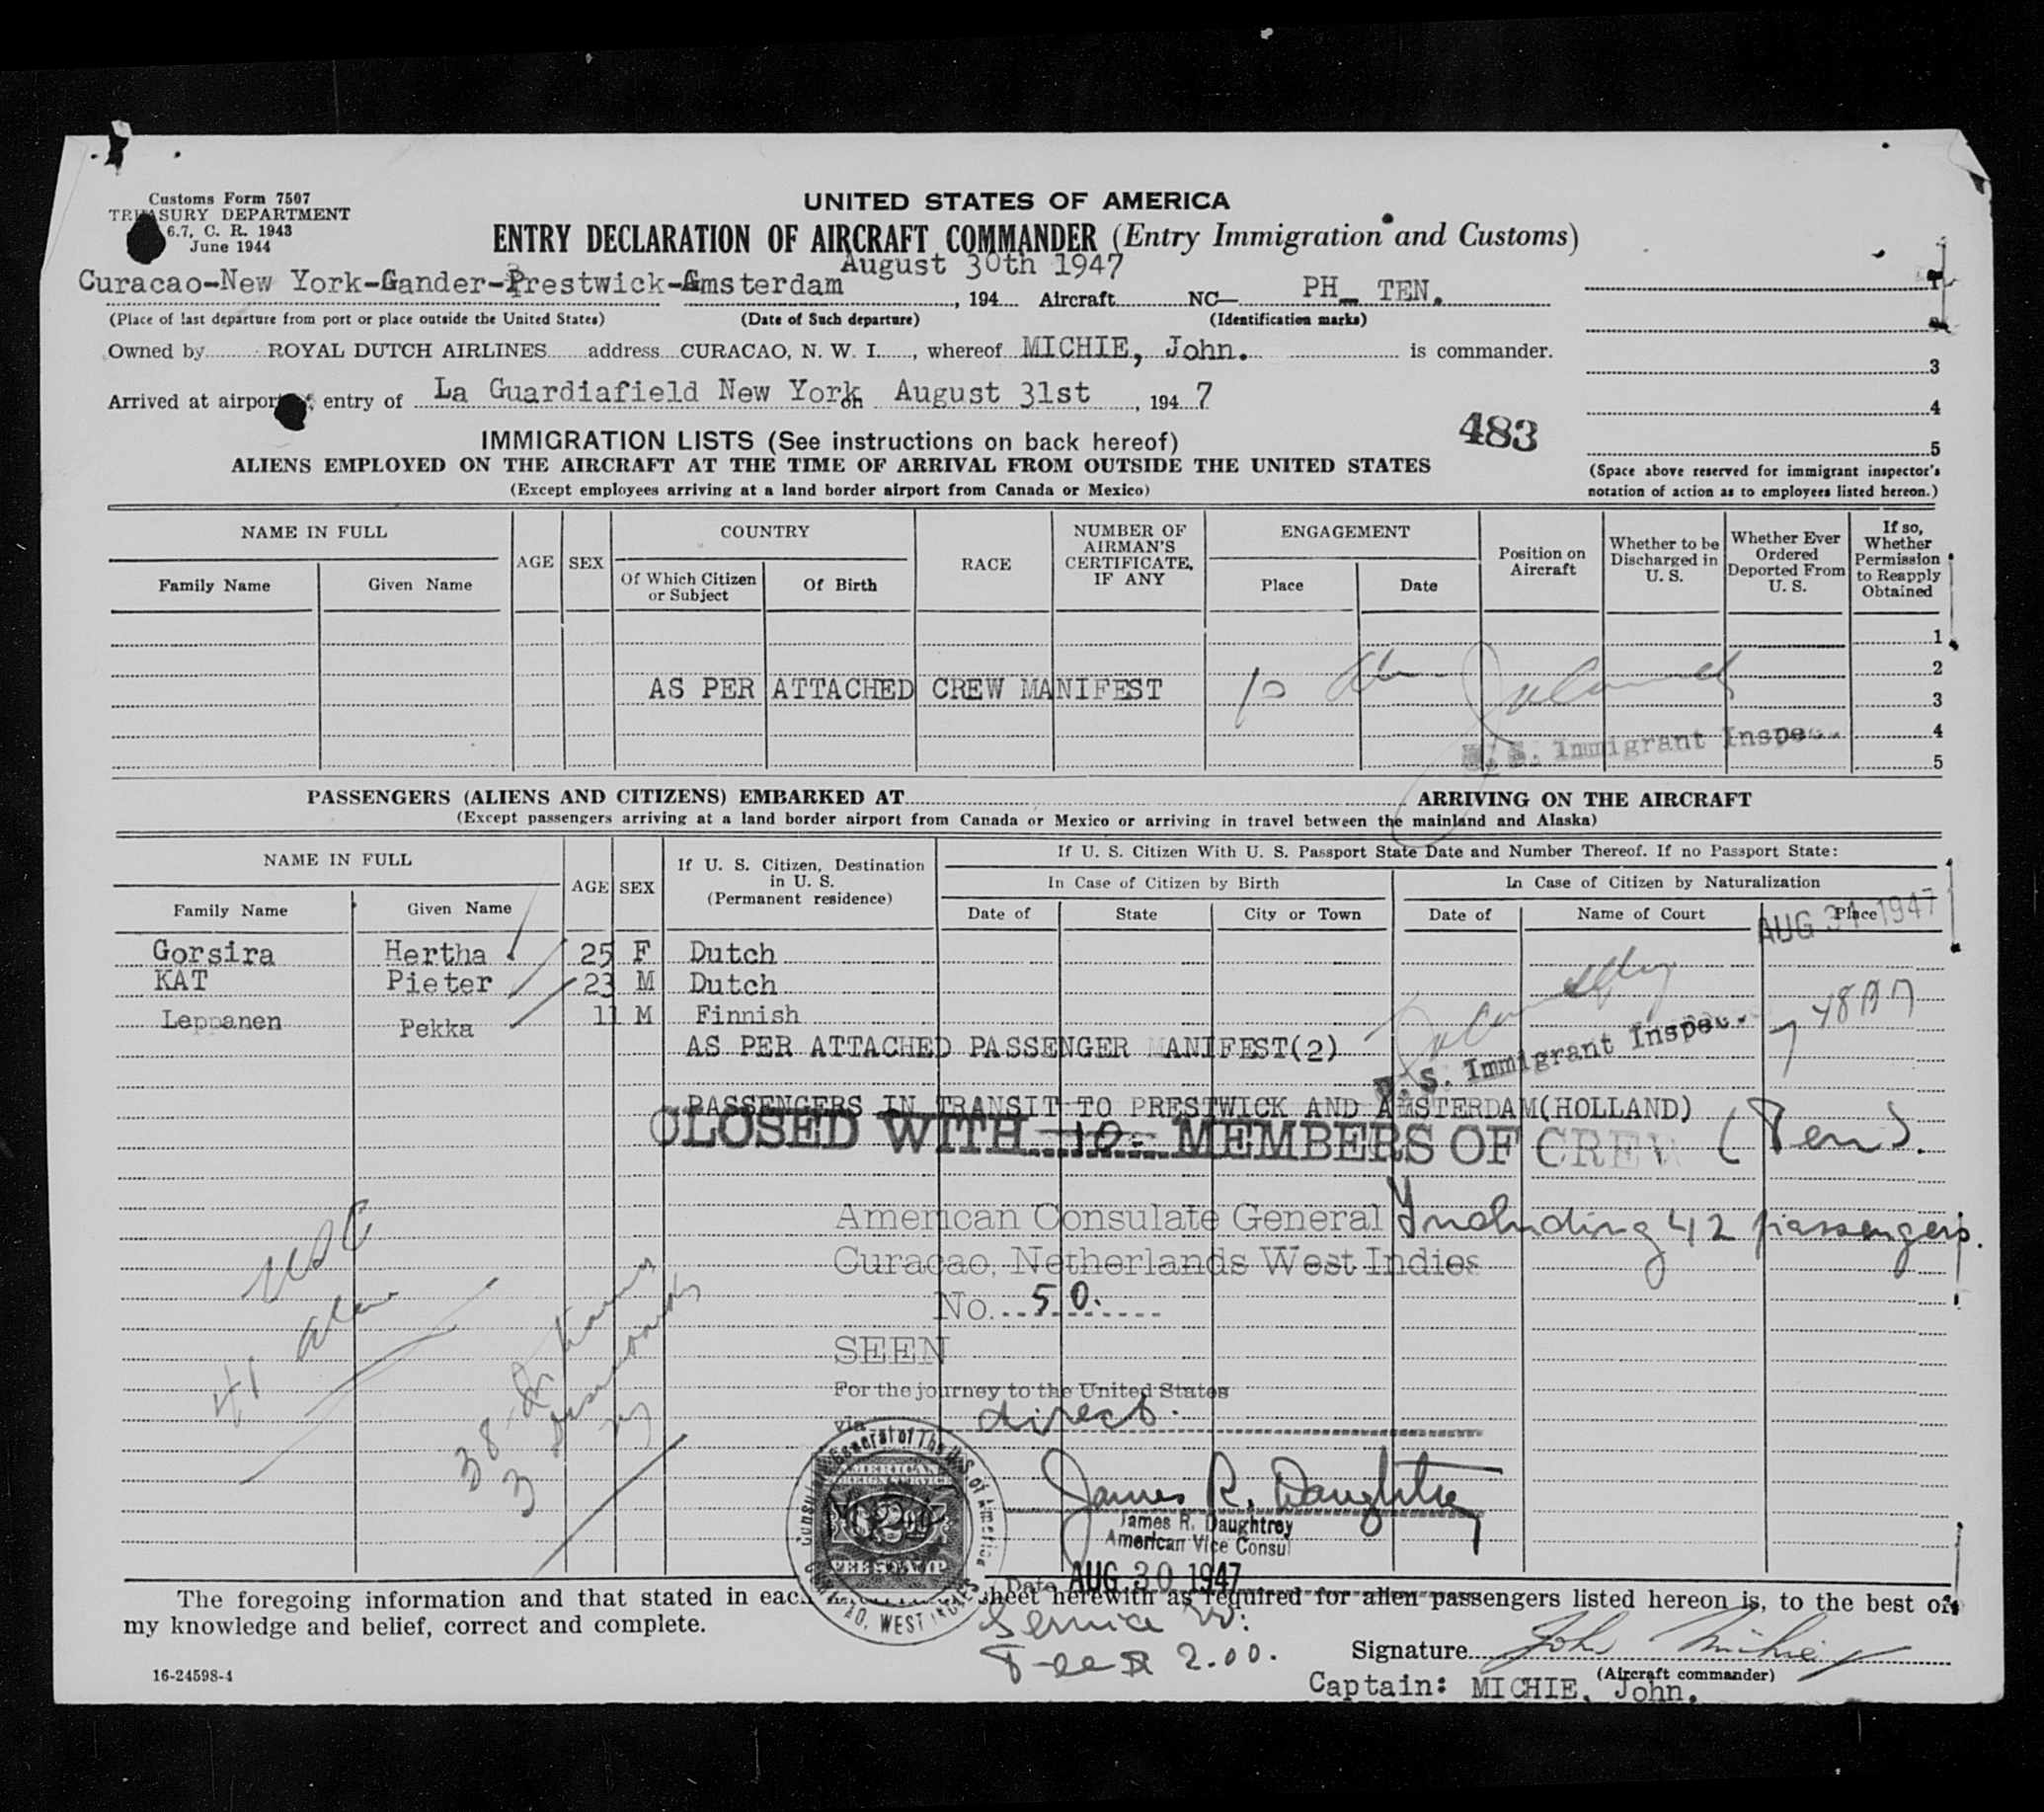 Customs Form 7507
TREASURY DEPARTMENT
6.7, C. R. 1943
June 1944
UNITED STATES OF AMERICA
ENTRY DECLARATION OF AIRCRAFT COMMANDER (Entry Immigration and Customs)
August 30th 1947
Curacao-New York-Gander-Prestwick-Amsterdam , 194 Aircraft NC— PH_ TEN.
(Place of last departure from port or place outside the United States) (Date of Such departure) (Identification marks)
Owned by ROYAL DUTCH AIRLINES address CURACAO, N. W. I. , whereof MICHIE, John. is commander.
Arrived at airport of entry of La Guardiafield New York on August 31st , 194 7
1
2
3
4
5
483
(Space above reserved for immigrant inspector's
notation of action as to employees listed hereon.)
IMMIGRATION LISTS (See instructions on back hereof)
ALIENS EMPLOYED ON THE AIRCRAFT AT THE TIME OF ARRIVAL FROM OUTSIDE THE UNITED STATES
(Except employees arriving at a land border airport from Canada or Mexico)
NAME IN FULL
Family Name
Given Name
AGE
SEX
COUNTRY
Of Which Citizen
or Subject
Of Birth
RACE
NUMBER OF
AIRMAN'S
CERTIFICATE,
IF ANY
ENGAGEMENT
Place
Date
Position on
Aircraft
Whether to be
Discharged in
U. S.
Whether Ever
Ordered
Deported From
U. S.
If so,
Whether
Permission
to Reapply
Obtained
1
2
AS PER ATTACHED CREW MANIFEST 10
3
U. S. Immigrant Inspec.
4
5
PASSENGERS (ALIENS AND CITIZENS) EMBARKED AT ARRIVING ON THE AIRCRAFT
(Except passengers arriving at a land border airport from Canada or Mexico or arriving in travel between the mainland and Alaska)
NAME IN FULL
Family Name
Given Name
AGE
SEX
If U. S. Citizen, Destination
in U. S.
(Permanent residence)
If U. S. Citizen With U. S. Passport State Date and Number Thereof. If no Passport State:
In Case of Citizen by Birth
In Case of Citizen by Naturalization
Date of
State
City or Town
Date of
Name of Court
Place
AUG 31 1947
Gorsira Hertha 25 F Dutch
KAT Pieter 23 M Dutch
Leppanen Pekka 11 M Finnish
AS PER ATTACHED PASSENGER MANIFEST(2)
U. S. Immigrant Inspec.
PASSENGERS IN TRANSIT TO PRESTWICK AND AMSTERDAM(HOLLAND)
CLOSED WITH 10- MEMBERS OF CREW (Ten).
American Consulate General Including 42 passengers.
Curacao, Netherlands West Indies
No. 50.
SEEN
For the journey to the United States
via direct.
USC
41 alien
38
3
Consulate General of The U.S. of America
CURACAO, WEST INDIES
AMERICAN
FOREIGN SERVICE
$2
FEE STAMP
James R. Daughtrey
James R. Daughtrey
American Vice Consul
Date AUG 30 1947
The foregoing information and that stated in each sheet herewith as required for alien passengers listed hereon is, to the best of
my knowledge and belief, correct and complete.
Service
Fee $ 2.00.
Signature John Michie
(Aircraft commander)
Captain: MICHIE, John.
16-24598-4